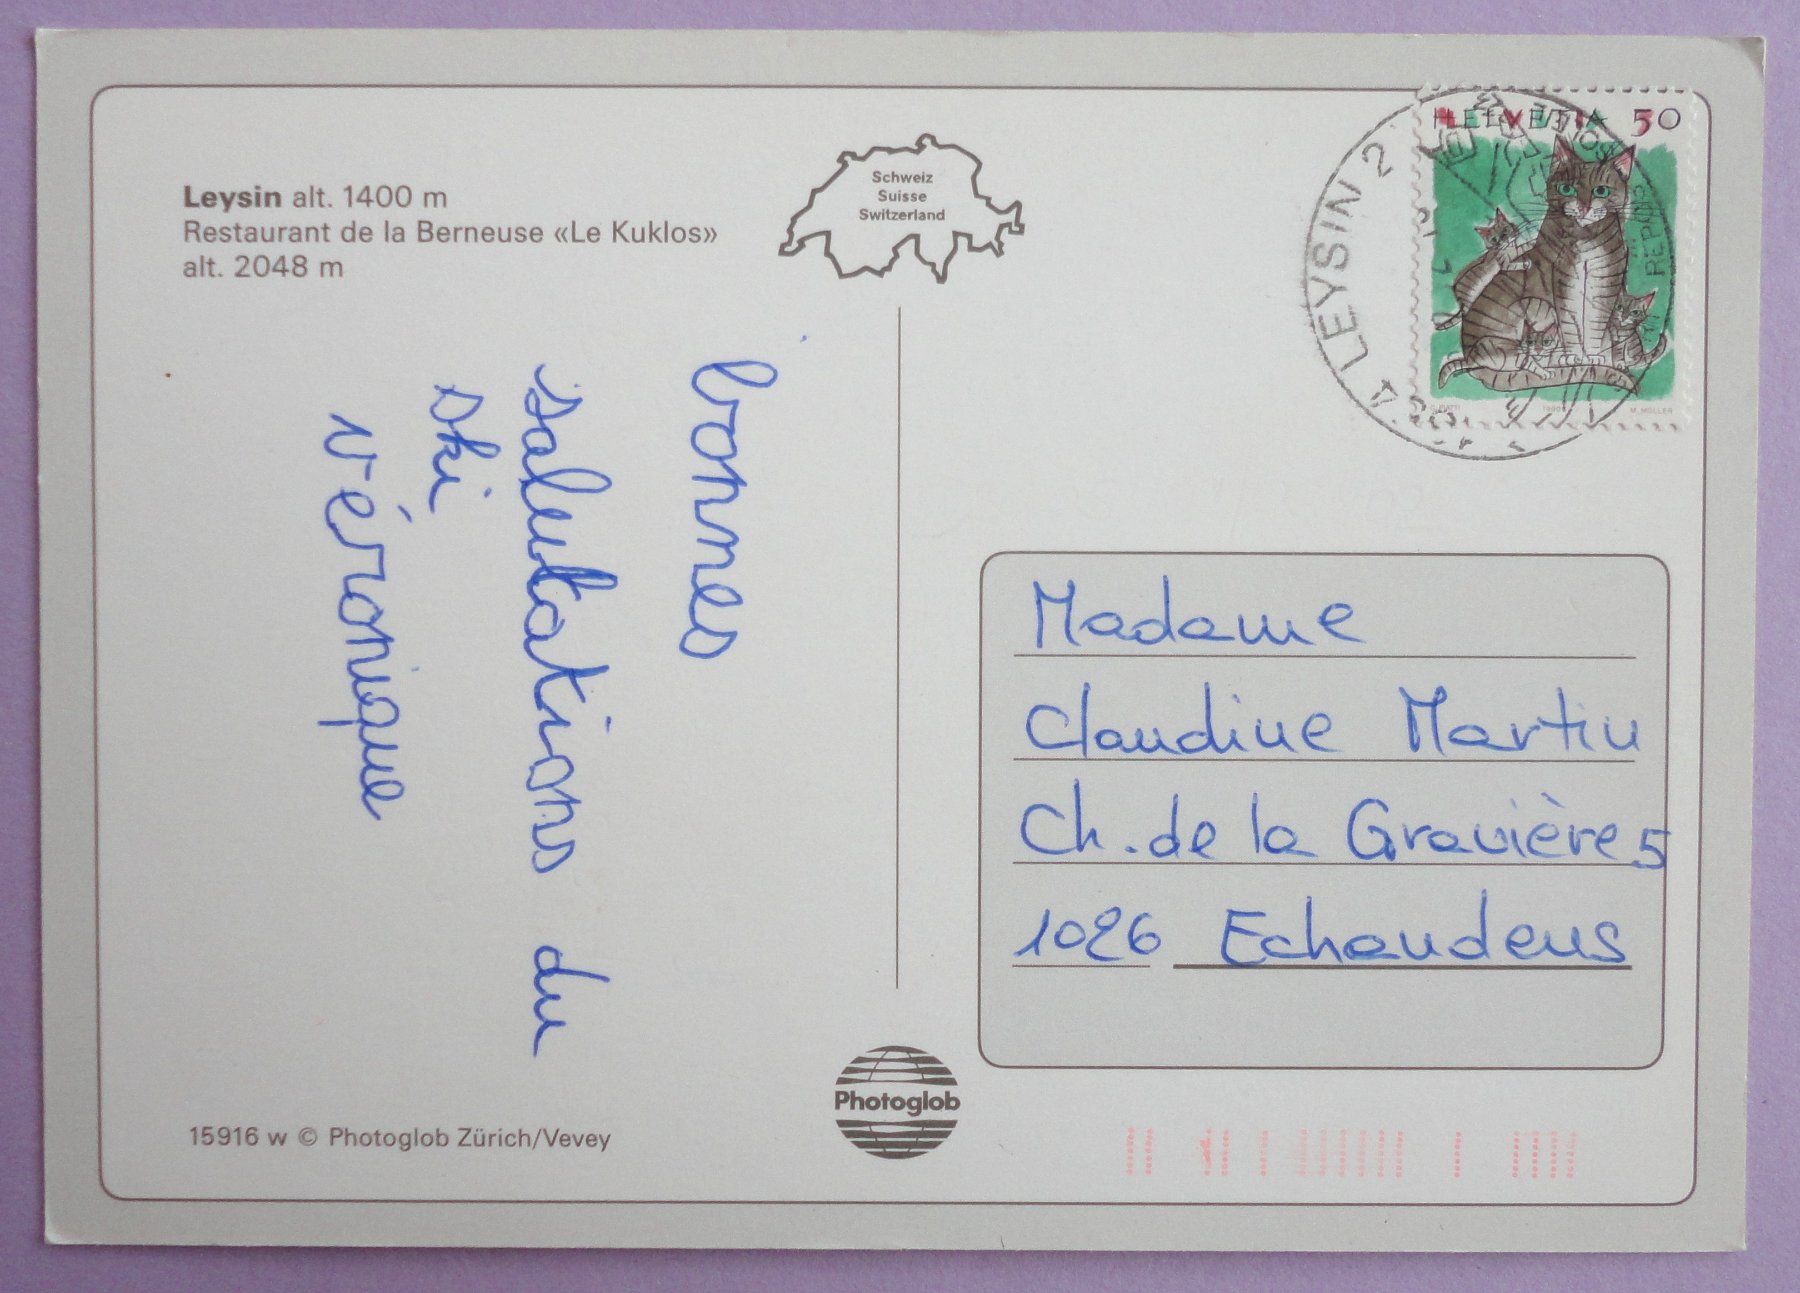 Leysin alt. 1400 m
Restaurant de la Berneuse «Le Kuklos»
alt. 2048 m
Schweiz
Suisse
Switzerland
HELVETIA 50
LEYSIN 2
1990
M. MÜLLER
bonnes
salutations du
ski
Véronique
Madame
Claudine Martin
Ch. de la Gravière 5
1026 Echandens
Photoglob
15916 w © Photoglob Zürich/Vevey